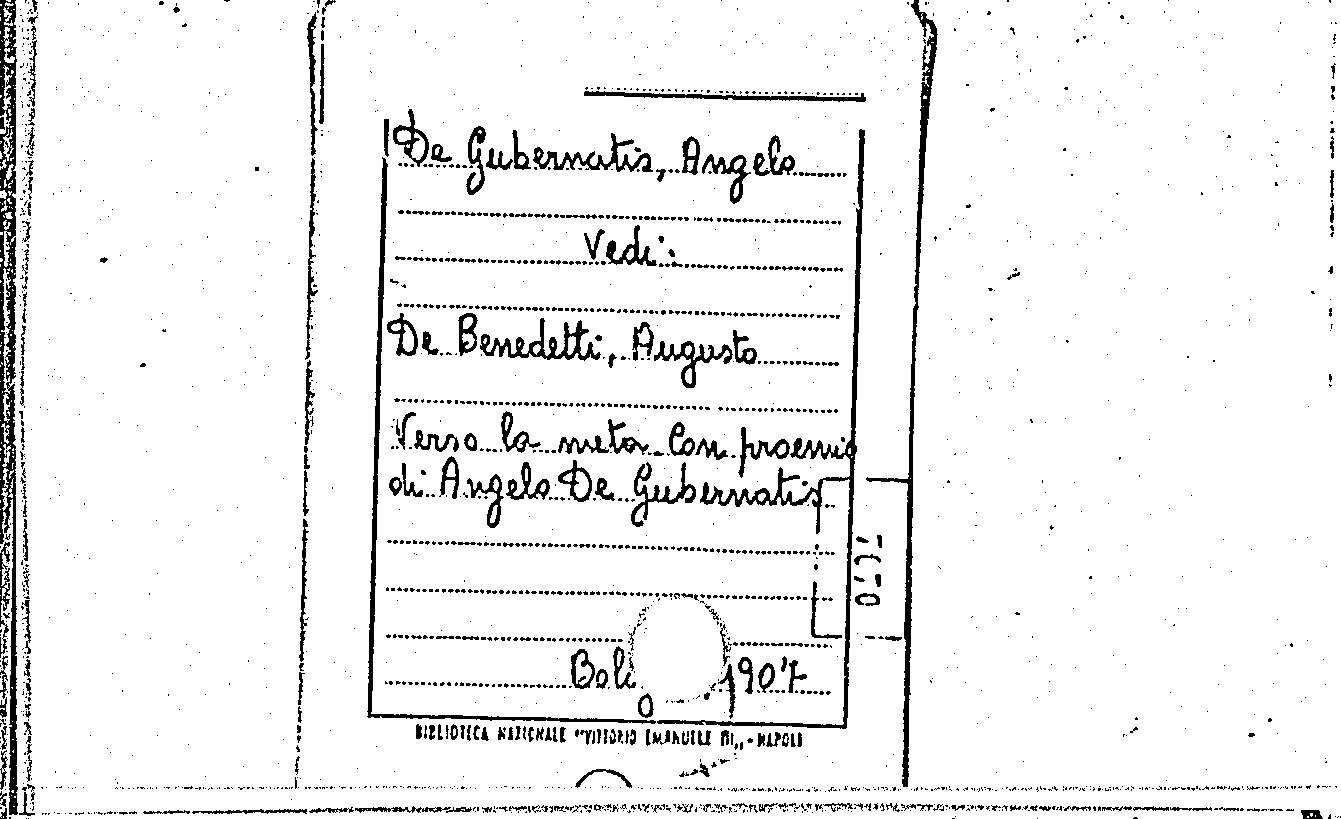 De Gubernatis, Angelo
Vedi:
De Benedetti, Augusto
Verso la meta. Con proemio
di Angelo De Gubernatis
1907
BIBLIOTECA NAZIONALE "VITTORIO EMANUELE III„ - NAPOLI